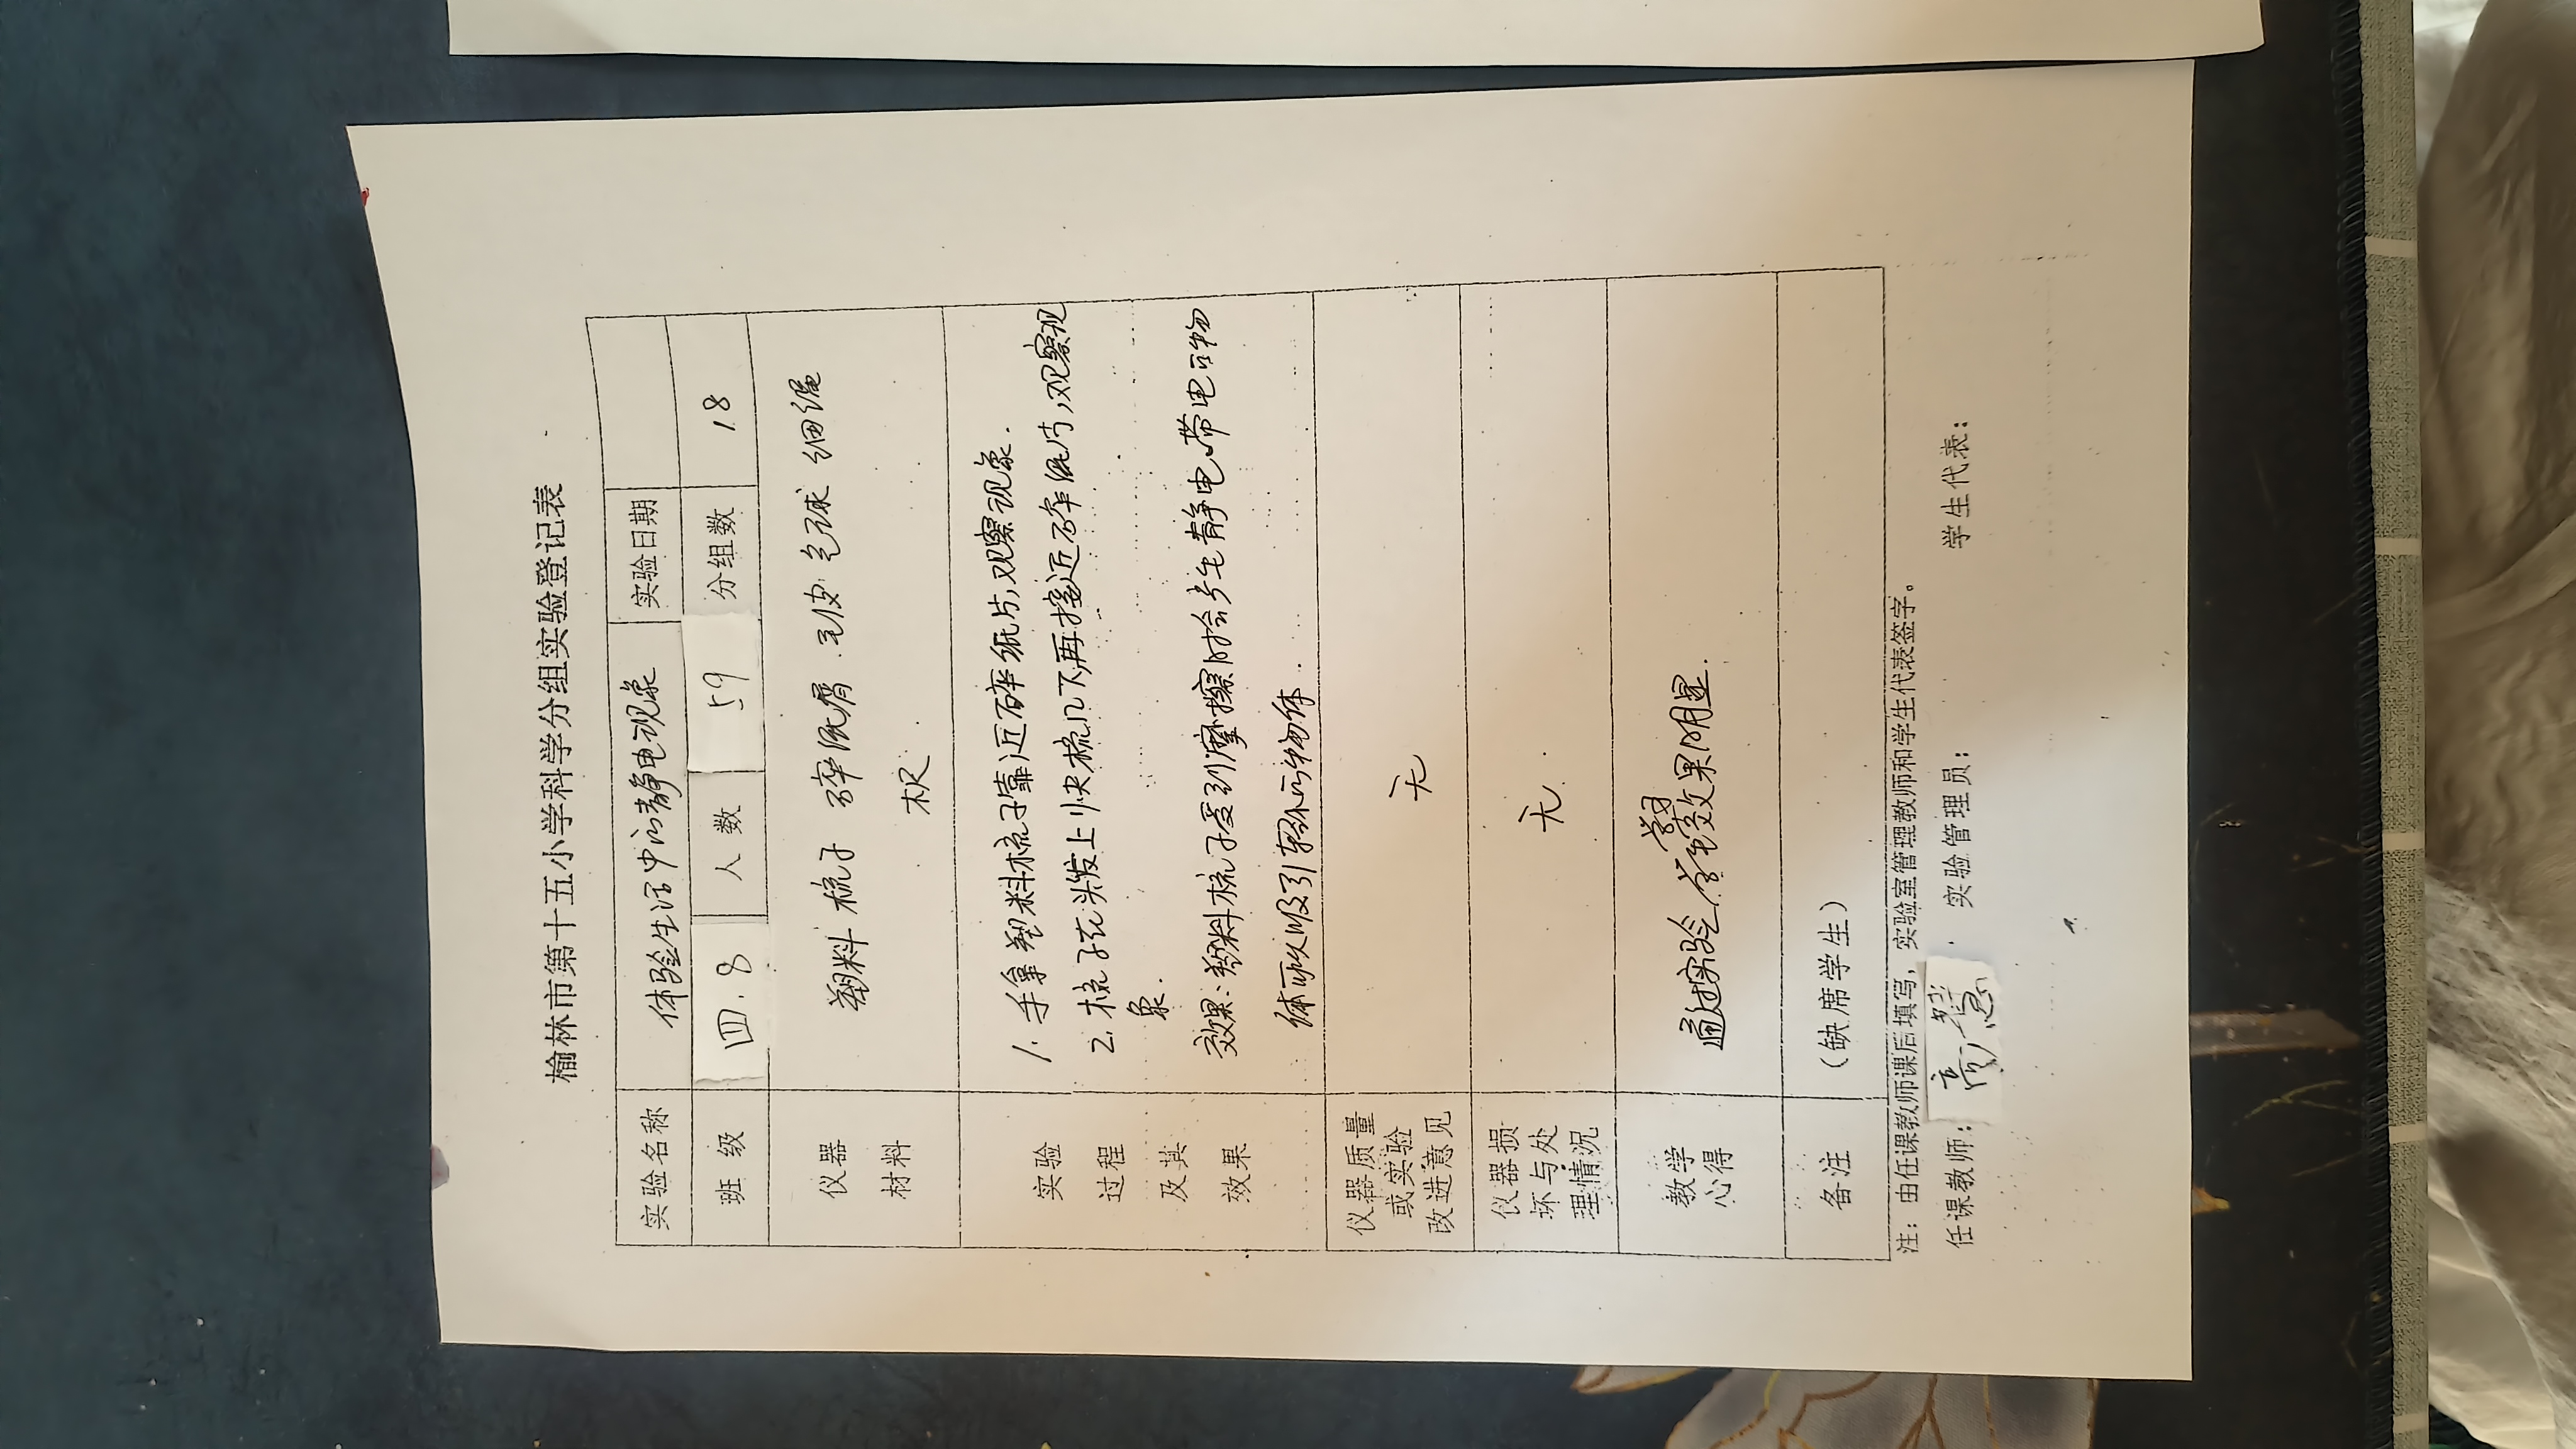 榆林市第十五小学科学分组实验登记表
实验名称 体验生活中的静电现象 实验日期
班级 四.8 人数 59 分组数 18
仪器 塑料梳子 碎纸屑 毛皮 气球 细绳
材料 木尺
实验 1.手拿塑料梳子靠近碎纸片,观察现象.
过程 2.梳子在头发上快梳几下,再接近碎纸片,观察现
象.
及其 效果:塑料梳子受到摩擦时会产生静电,带电的物
效果 体可以吸引轻小的物体.
仪器质量
或实验 无
改进意见
仪器损
坏与处 无
理情况
教学 通过实验,学习效果明显.
心得
备注 (缺席学生)
注:由任课教师课后填写,实验室管理教师和学生代表签字。
任课教师: 高慧 实验管理员: 学生代表: